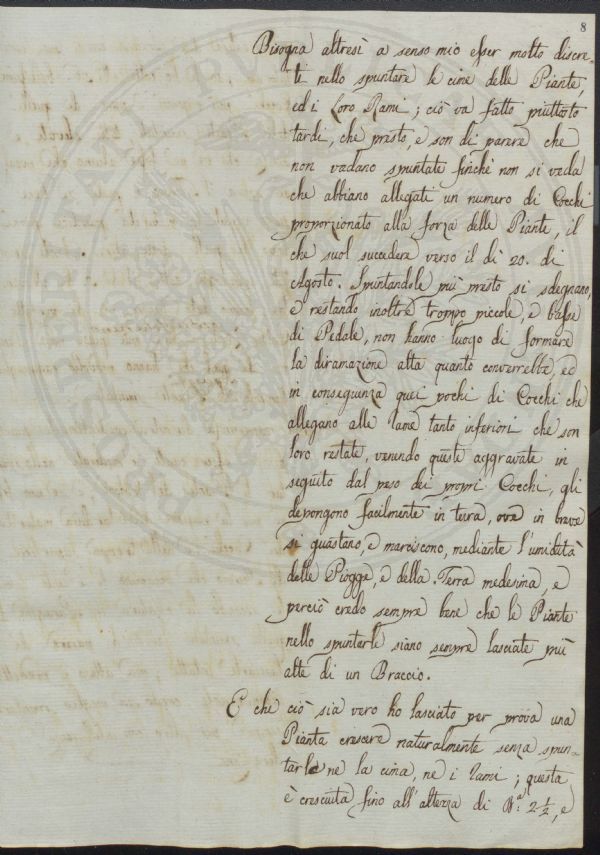 8
Bisogna altresì a senso mio esser molto discre-
ti nello spuntare le cime delle Piante,
ed i Loro Rami; ciò va fatto piuttosto
tardi, che presto, e son di parere che
non vadano spuntate finchè non si veda
che abbiano allegati un numero di Cocchi
proporzionato alla forza delle Piante, il
che suol succedere verso il dì 20. di
Agosto. Spuntandole più presto si sdegnano,
e restando inoltre troppo piccole, e basse
di Pedale, non hanno luogo di formare
la diramazione alta quanto converrebbe, ed
in conseguenza quei pochi di Cocchi che
allegano alle rame tanto inferiori che son
loro restate, venendo queste aggravate in
seguito dal peso dei propri Cocchi, gli
depongono facilmente in terra, ove in breve
si guastano, e marciscono, mediante l'umidità
delle Piogge, e della Terra medesima, e
perciò credo sempre bene che le Piante
nello spuntarle siano sempre lasciate più
alte di un Braccio.
E che ciò sia vero ho lasciato per prova una
Pianta crescere naturalmente senza spun-
tarle ne la cima, ne i rami; questa
è cresciuta fino all'altezza di B.a 2 1/2, e